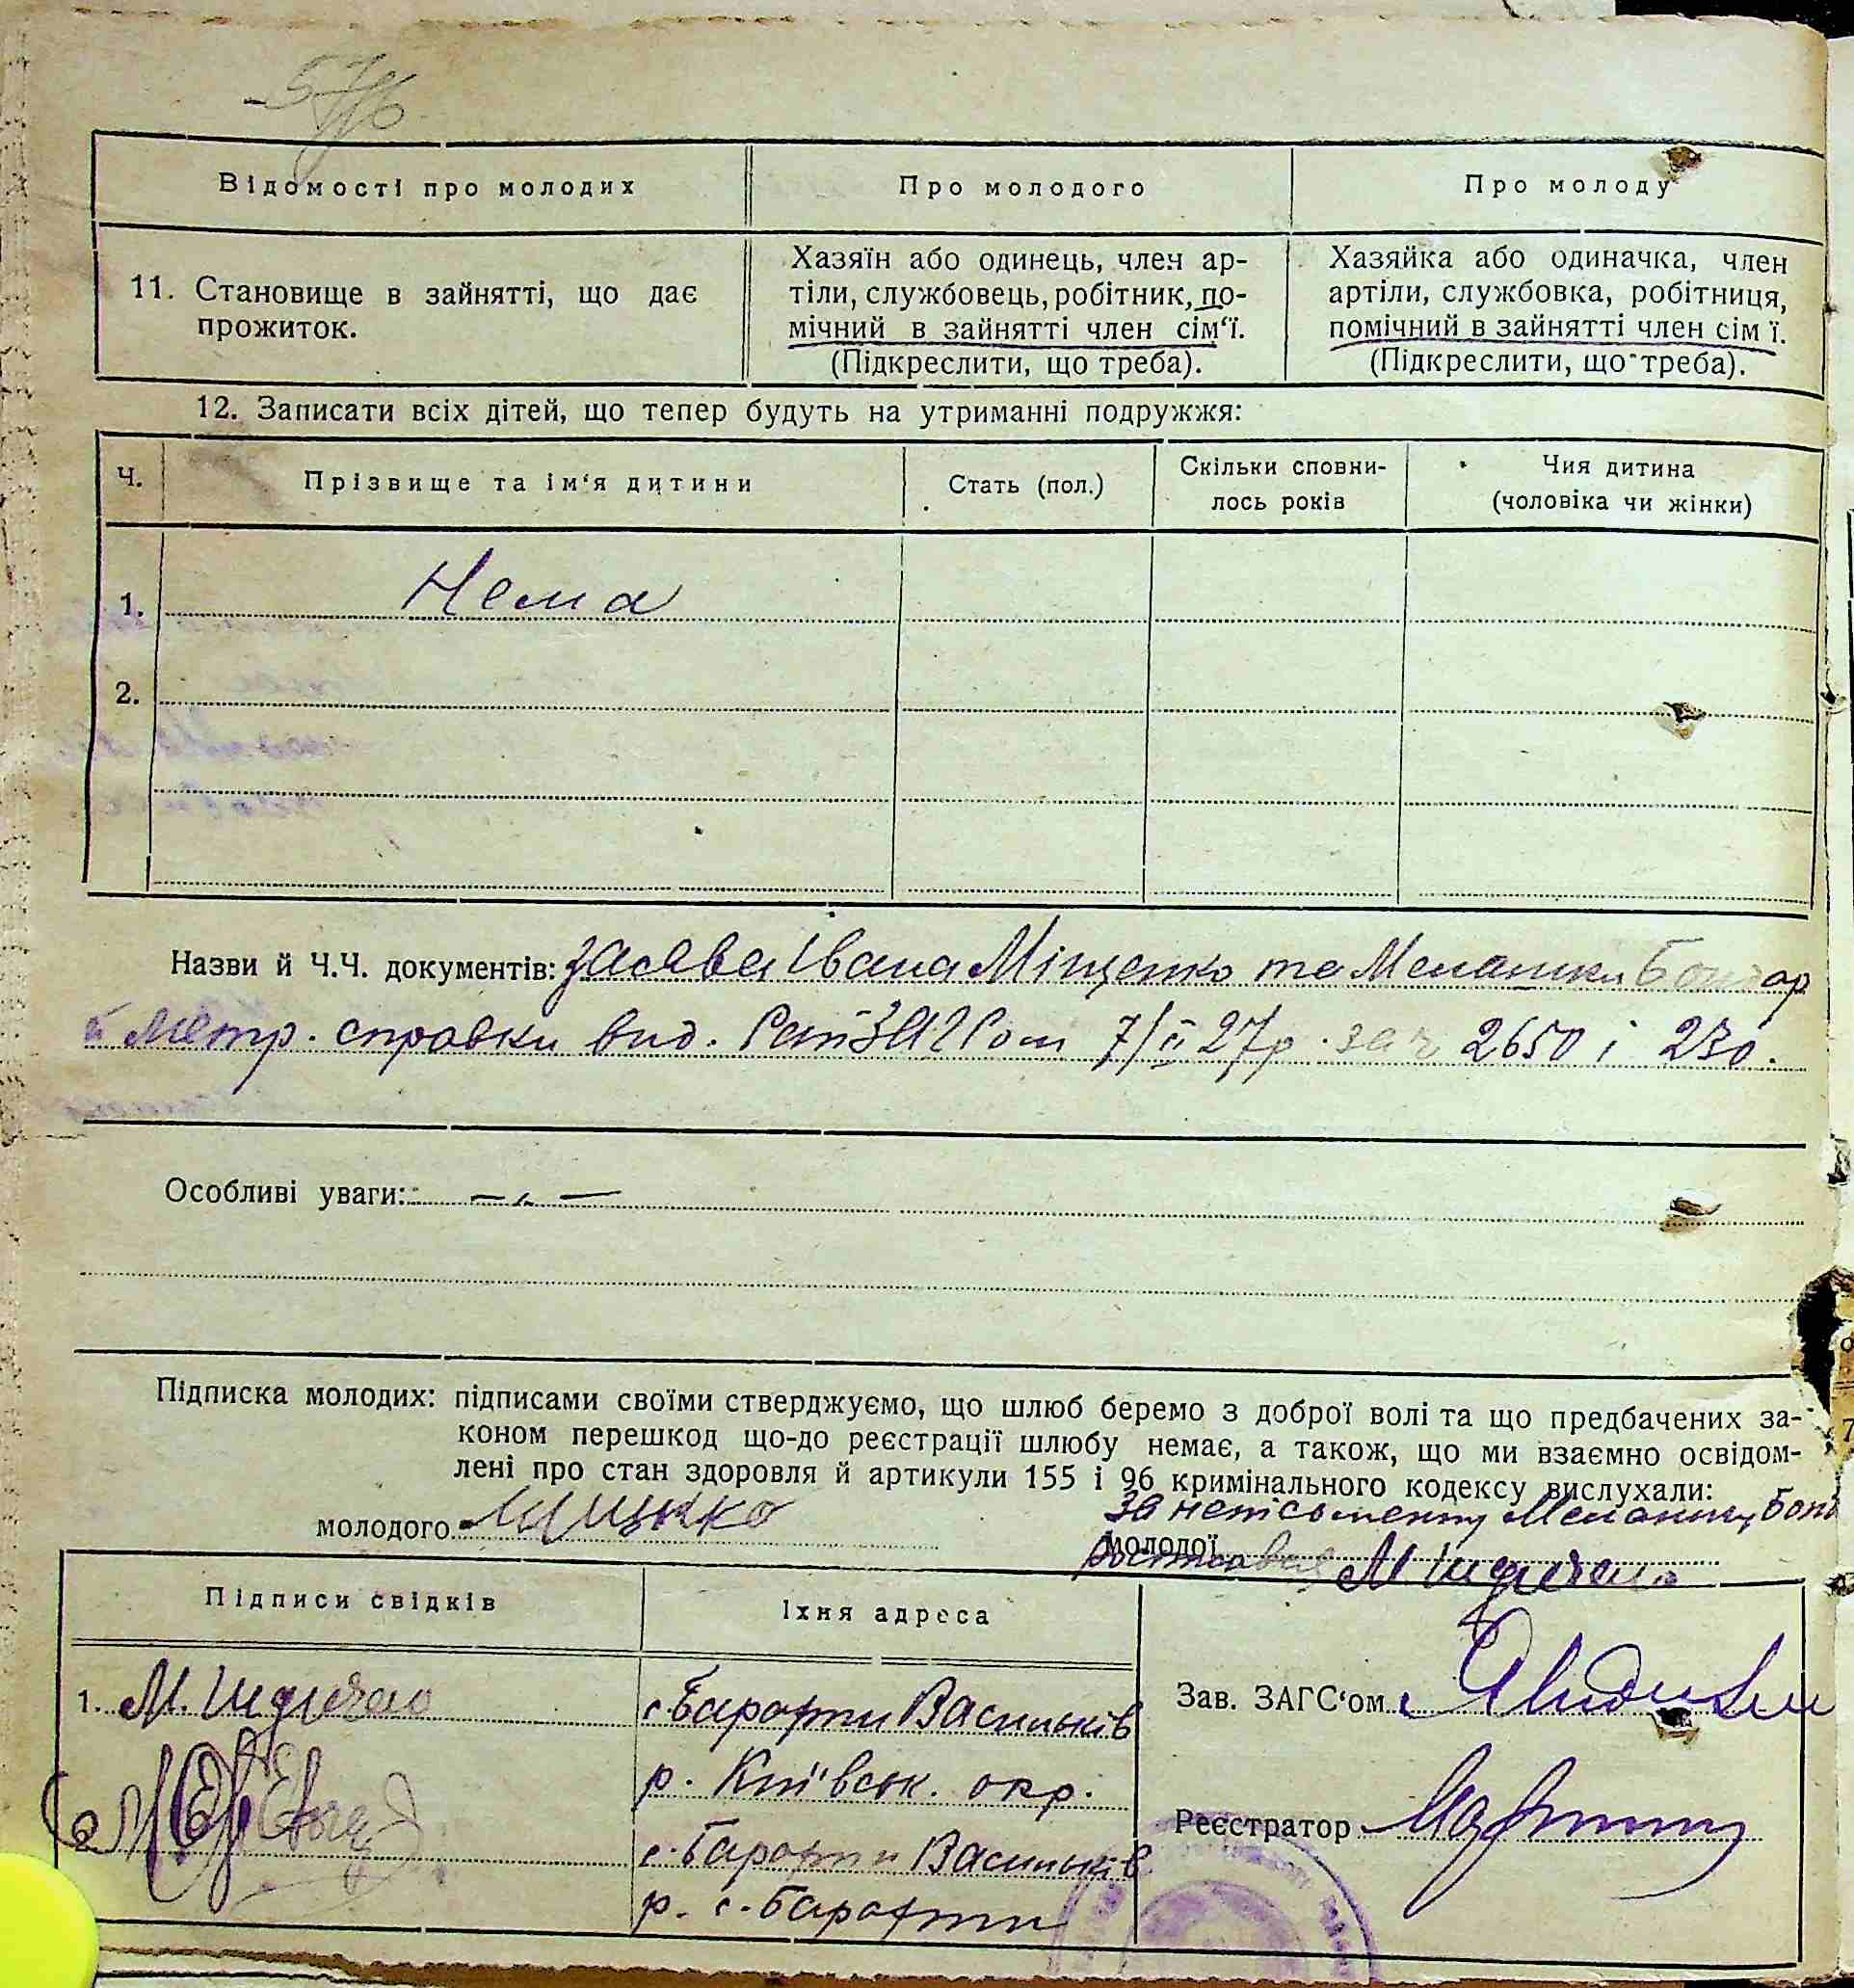 Відомості про молодих
Про молодого
Про молоду
11. Становище в зайнятті, що дає
прожиток.
Хазяїн або одинець, член ар-
тіли, службовець, робітник, по-
мічний в зайнятті член сім'ї.
(Підкреслити, що треба).
Хазяйка або одиначка, член
артіли, службовка, робітниця,
помічний в зайнятті член сім ї.
(Підкреслити, що треба).
12. Записати всіх дітей, що тепер будуть на утриманні подружжя:
Ч.
Прізвище та ім'я дитини
Стать (пол.)
Скільки сповни-
лось років
Чия дитина
(чоловіка чи жінки)
1. Нема
2.
Назви й Ч.Ч. документів: заява Івана Міщенко та Меланки Бондар
метр. справки вид. РайЗАГСом 7/II 27р. за ч 2650 і 230.
Особливі уваги:
Підписка молодих: підписами своїми стверджуємо, що шлюб беремо з доброї волі та що предбачених за-
коном перешкод що-до реєстрації шлюбу немає, а також, що ми взаємно освідом-
лені про стан здоровля й артикули 155 і 96 кримінального кодексу вислухали:
молодого
за неписьменну Меланку Бонд
молодої
Підписи свідків
Їхня адреса
1. М.
с Барахти Васильків
р. Київськ. окр.
2.
с. Барахти Васильків
р. с. Барахти
Зав. ЗАГС'ом
Реєстратор